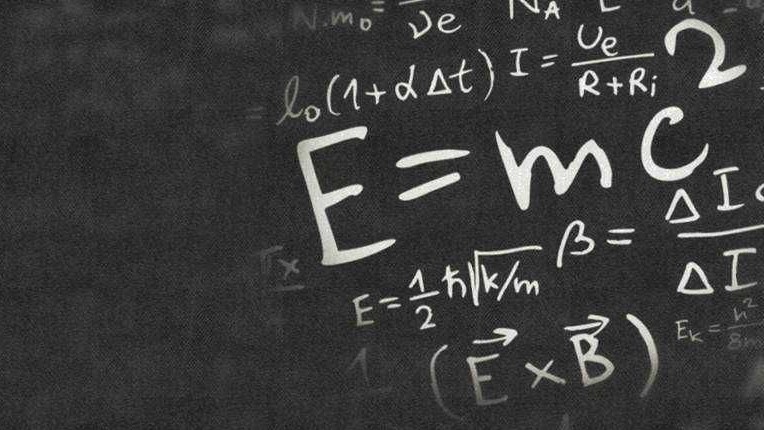 N.m₀ = / νe N_A L
= l₀(1+αΔt) I = Ue / R+Ri
E = mc²
β = ΔI / ΔI
E = 1/2 ħ√k/m
Eₖ = h² / 8m
1 (E⃗ × B⃗)